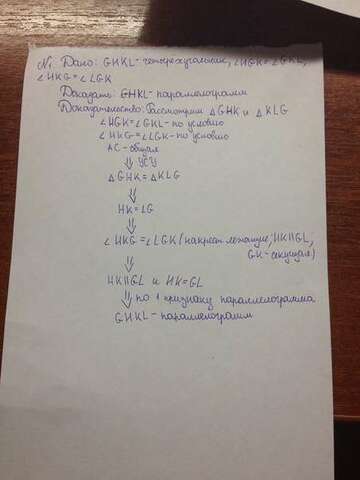 №1 Дано: GHKL - четырехугольник, ∠HGK = ∠GKL,
∠HKG = ∠LGK
Доказать: GHKL - параллелограмм
Доказательство: Рассмотрим △GHK и △KLG
∠HGK = ∠GKL - по условию
∠HKG = ∠LGK - по условию
AC - общая
⇓ УСУ
△GHK = △KLG
⇓
HK = LG
⇓
∠HKG = ∠LGK (накрест лежащие, HK∥GL,
GK - секущая)
⇓
HK∥GL и HK = GL
⇓ по 1 признаку параллелограмма
GHKL - параллелограмм